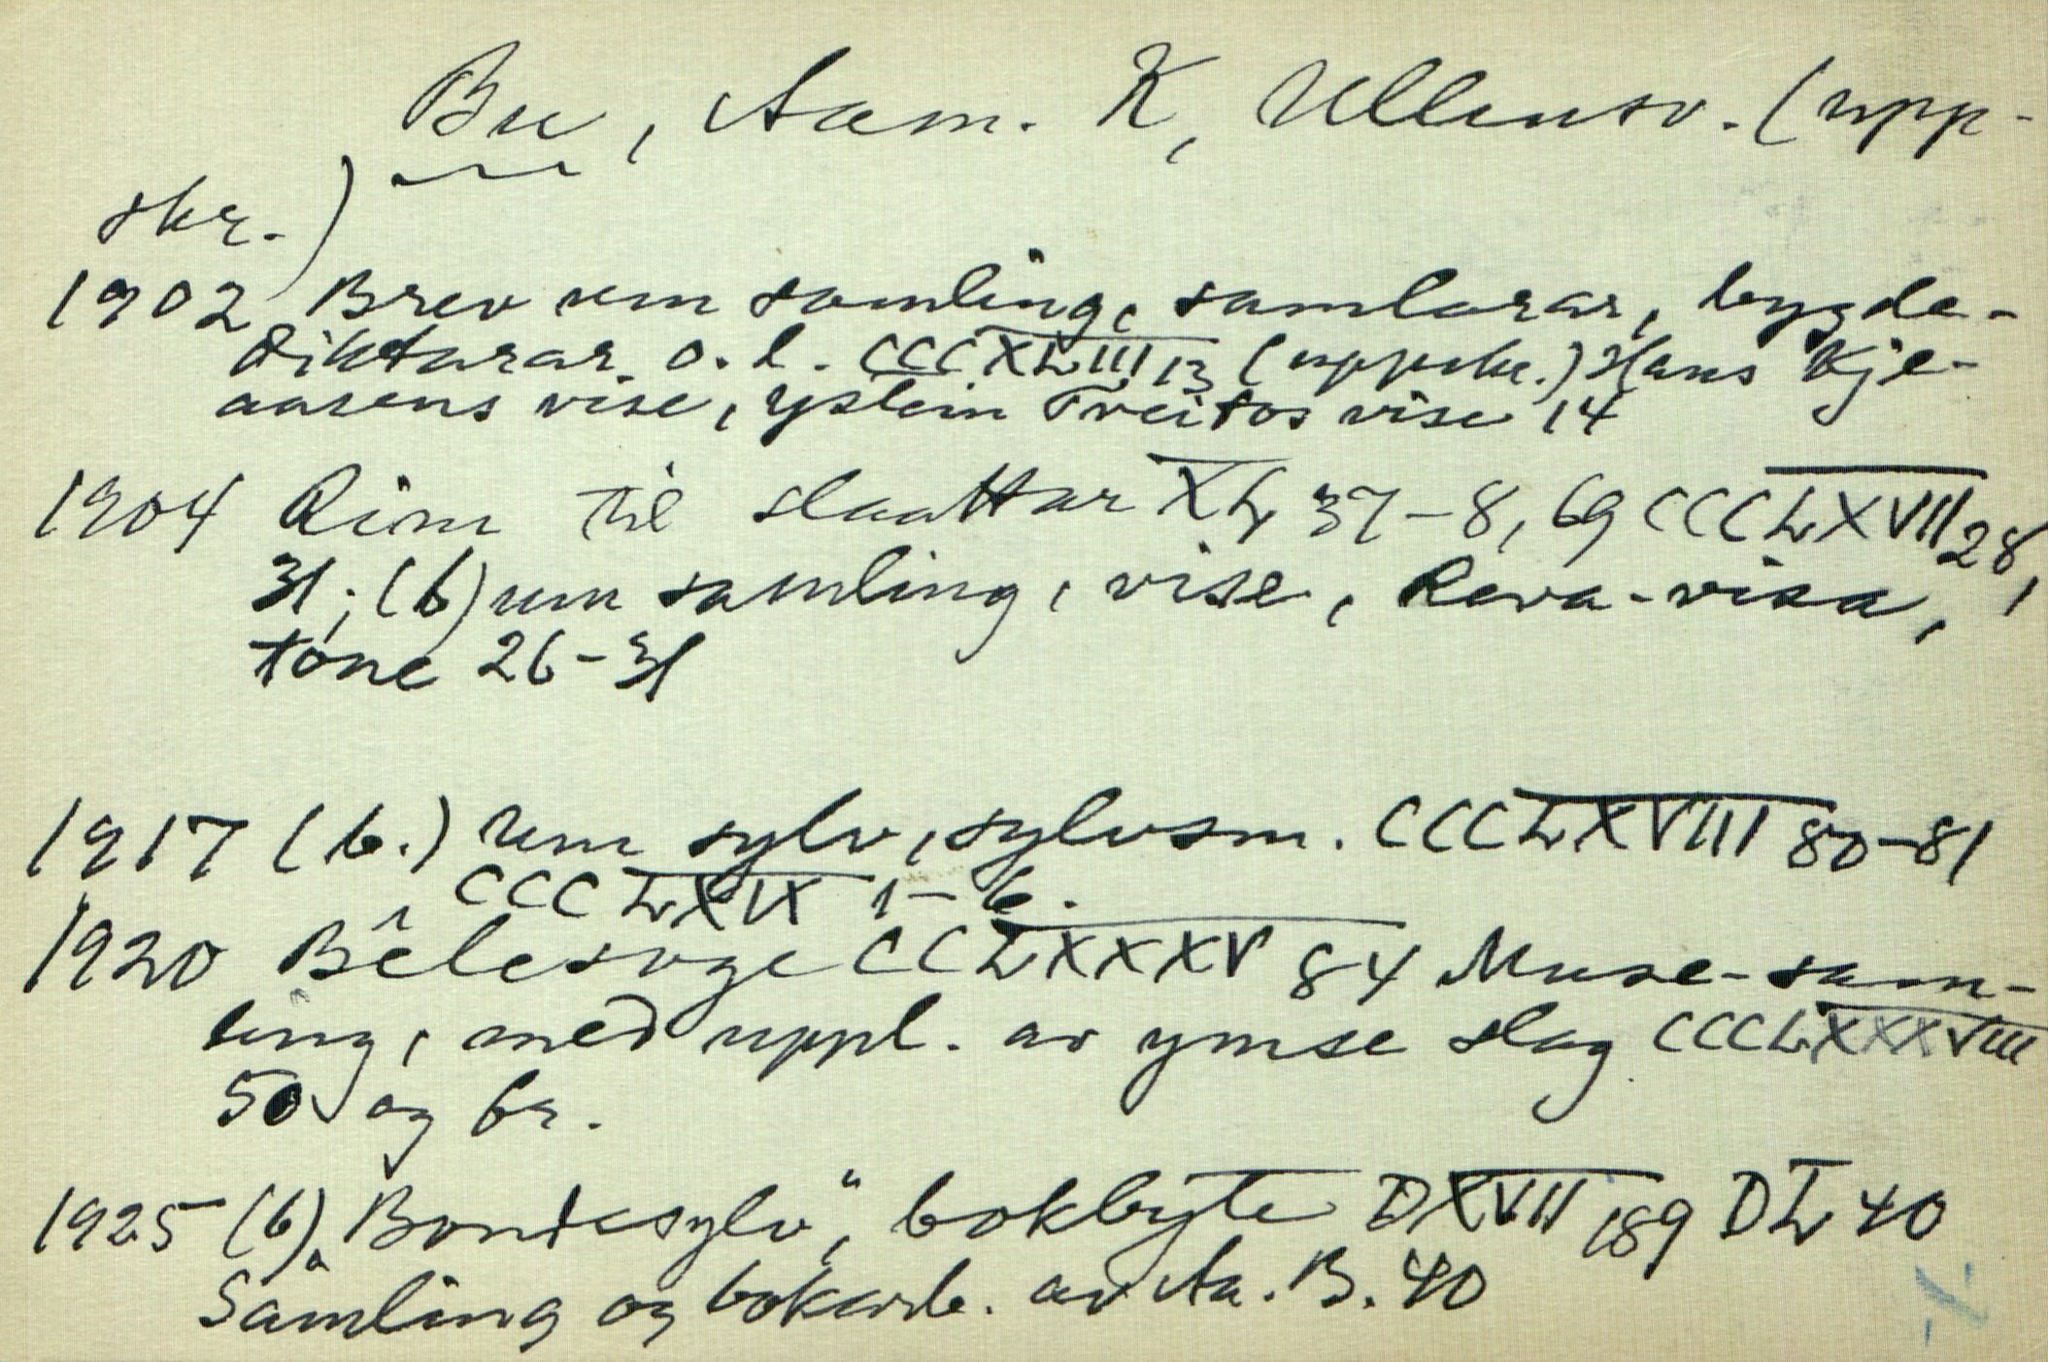 Bu, Aam. K, Ullensv. (upp-
skr.)
1902 Brev um samling, samlarar, bygde-
diktarar o.l. CCCXLIII 13 (uppskr.) Hans Kje-
aasens vise, Ystein Treitos vise 14
1904 Rim til slaattar XL 37-8, 69 CCCLXVII 28,
31; (b) um samling, vise, Reva-visa,
tone 26-31
1917 (b.) um sylv, sylvsm. CCCLXVIII 80-81
CCCLXIX 1-6.
1920 Bêlesoge CCLXXXV 84 Muse-sam-
ling, med uppl. av ymse slag CCCLXXXVIII
50 og br.
1925 (b) "Bondesylv", bokbyte DXVII 189 DL 40
Samling og bokarb. av Aa. B. 40